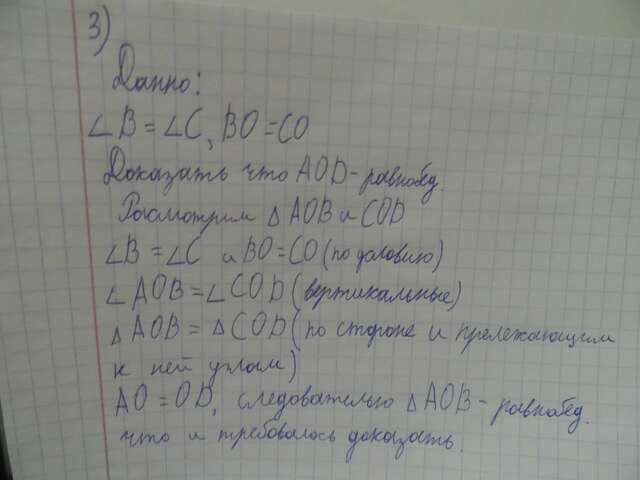 3)
Данно:
∠B = ∠C, BO = CO
Доказать что AOD - равнобед.
Росмотрим △ AOB и COD
∠B = ∠C и BO = CO (по условию)
∠ AOB = ∠COD (вертикальные)
△ AOB = △ COD (по стороне и прележающим
к ней углам)
AO = OD, следовательно △ AOB - равнобед.
что и требовалось доказать.